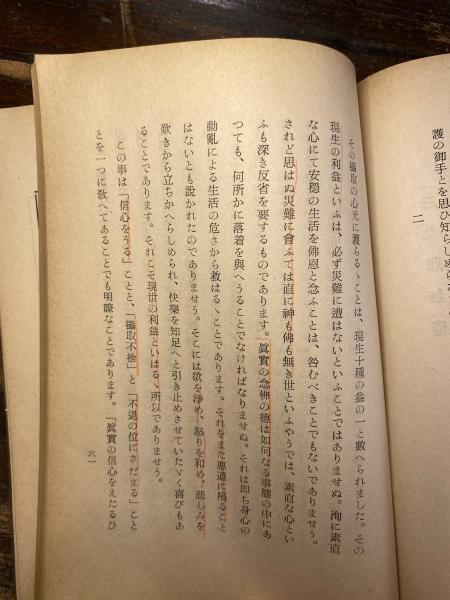 護の御手とを思ひ知らしめられ
二
その攝取の心光に護らるゝことは、現生十種の益の一と數へられました。その
現生の利益といふは、必ず災難に遭はないといふことではありませぬ。洵に素直
な心にて安穩の生活を佛恩と念ふことは、咎むべきことでもないでありませう。
されど思はぬ災難に會ふては直に神も佛も無き世といふやうでは、素直な心とい
ふも深き反省を要するものであります。眞實の念佛の德は如何なる事態の中にあ
つても、何所かに落着を與へうることでなければなりませぬ。それは即ち身心の
動亂による生活の危さから救はるゝことであります。それをまた惡道に陷ること
はないとも說かれたのでありませう。そこには欲を淨め、怒りを和め、悲しみを
歎きから立ちかへらしめられ、快樂を知足へと引き止めさせていたゞく喜びもあ
ることであります。それこそ現世の利益といはるゝ所以でありませう。
この事は「信心をうる」ことと、「攝取不捨」と「不退の位にさだまる」こと
とを一つに敎へてあることでも明瞭なことであります。「眞實の信心をえたるひ
六一